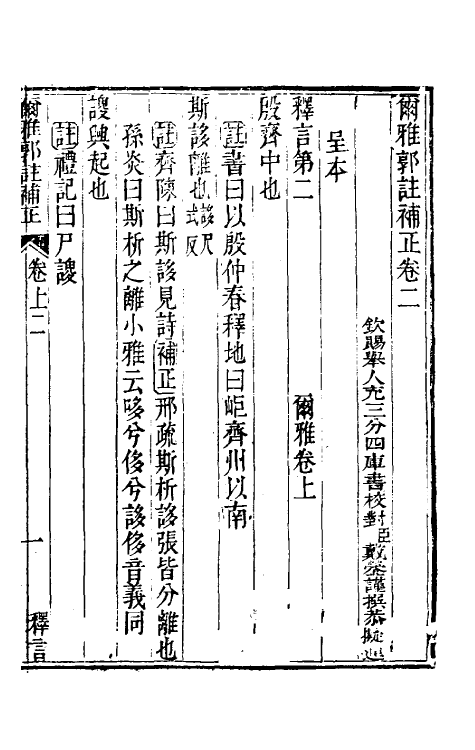 爾雅郭註補正卷二
欽賜舉人充三分四庫書校對臣戴蓥謹撰恭擬進
呈本
釋言第二 爾雅卷上
殷齊中也
註書曰以殷仲春釋地曰岠齊州以南
斯誃離也誃尺式反
註齊陳曰斯誃見詩補正邢疏斯析誃張皆分離也
孫炎曰斯析之離小雅云哆兮侈兮誃侈音義同
謖興起也
註禮記曰尸謖
爾雅郭註補正 卷上二 一 釋言